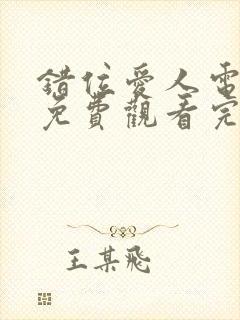 錯位愛人電
免費觀看完
王某飛